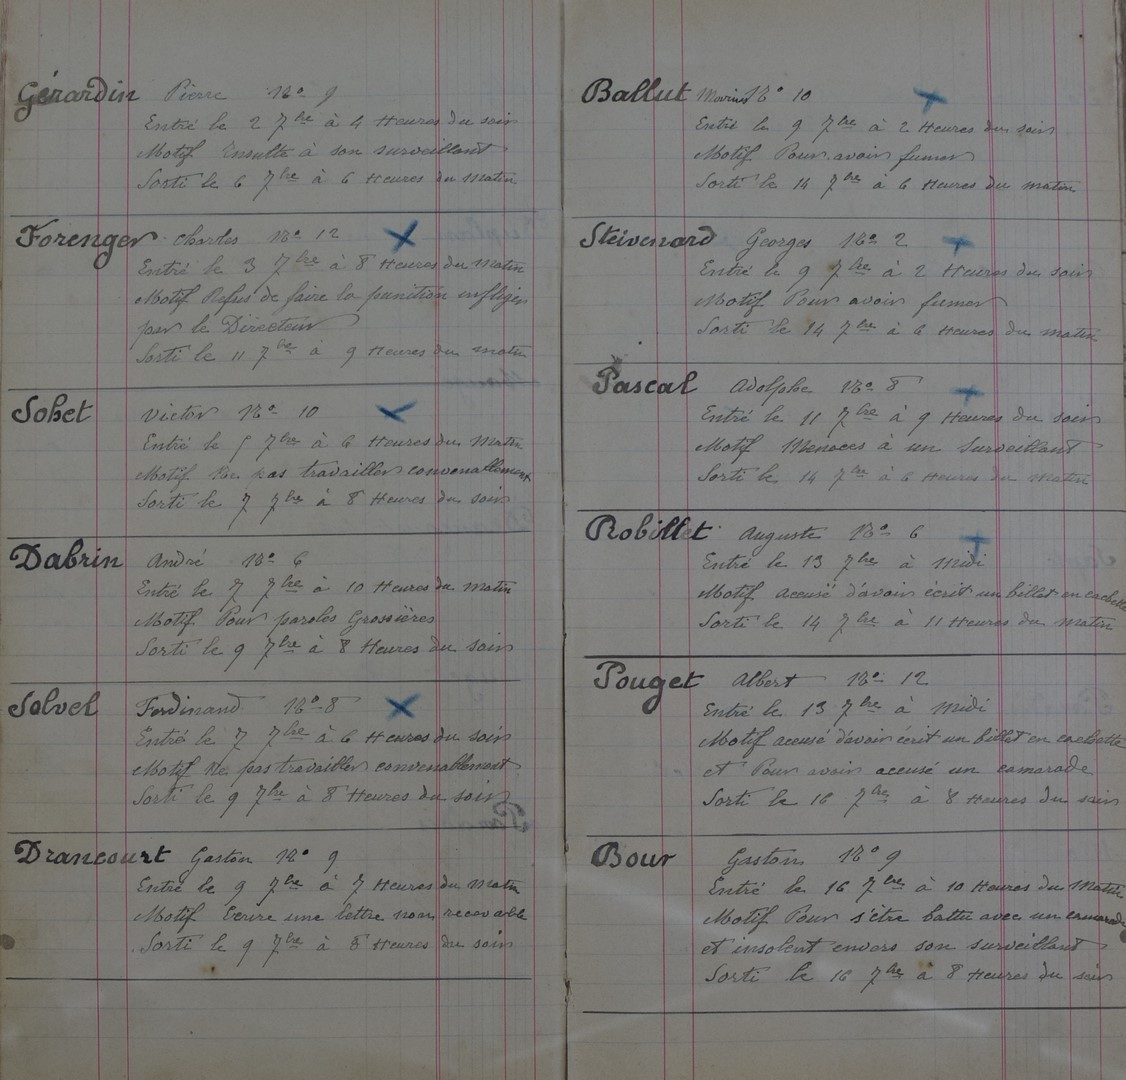 Gérardin Pierre No 9
Entré le 2 7bre à 4 Heures du soir
Motif Insulte à son surveillant
Sorti le 6 7bre à 6 Heures du matin
Forenger Charles No 12
Entré le 3 7bre à 8 Heures du Matin
Motif Refus de faire la punition infligée
par le Directeur
Sorti le 11 7bre à 9 Heures du matin
Sohet Victor No 10
Entré le 5 7bre à 6 Heures du Matin
Motif Ne pas travailler convenallement
Sorti le 7 7bre à 8 Heures du soir
Dabrin André No 6
Entré le 7 7bre à 10 Heures du Matin
Motif Pour paroles Grossières
Sorti le 9 7bre à 8 Heures du soir
Solvel Ferdinand No 8
Entré le 7 7bre à 6 Heures du soir
Motif Ne pas travailler convenallement
Sorti le 9 7bre à 8 Heures du soir
Drancourt Gaston No 9
Entré le 9 7bre à 7 Heures du Matin
Motif Ecrire une lettre non recevable
Sorti le 9 7bre à 8 Heures du soir
Ballut Marius No 10
Entré le 9 7bre à 2 Heures du soir
Motif Pour avoir fumer
Sorti le 14 7bre à 6 Heures du matin
Steivenard Georges No 2
Entré le 9 7bre à 2 Heures du soir
Motif Pour avoir fumer
Sorti le 14 7bre à 6 Heures du matin
Pascal Adolphe No 8
Entré le 11 7bre à 9 Heures du soir
Motif Menaces à un Surveillant
Sorti le 14 7bre à 6 Heures du Matin
Robillet Auguste No 6
Entré le 13 7bre à Midi
Motif accusé d'avoir écrit un billet en cachette
Sorti le 14 7bre à 11 Heures du Matin
Pouget Albert No 12
Entré le 13 7bre à Midi
Motif accusé d'avoir écrit un billet en cachette
et Pour avoir accusé un camarade
Sorti le 16 7bre à 8 Heures du soir
Bour Gaston No 9
Entré le 16 7bre à 10 Heures du Matin
Motif Pour s'être battu avec un camarade
et insolent envers son surveillant
Sorti le 16 7bre à 8 Heures du soir